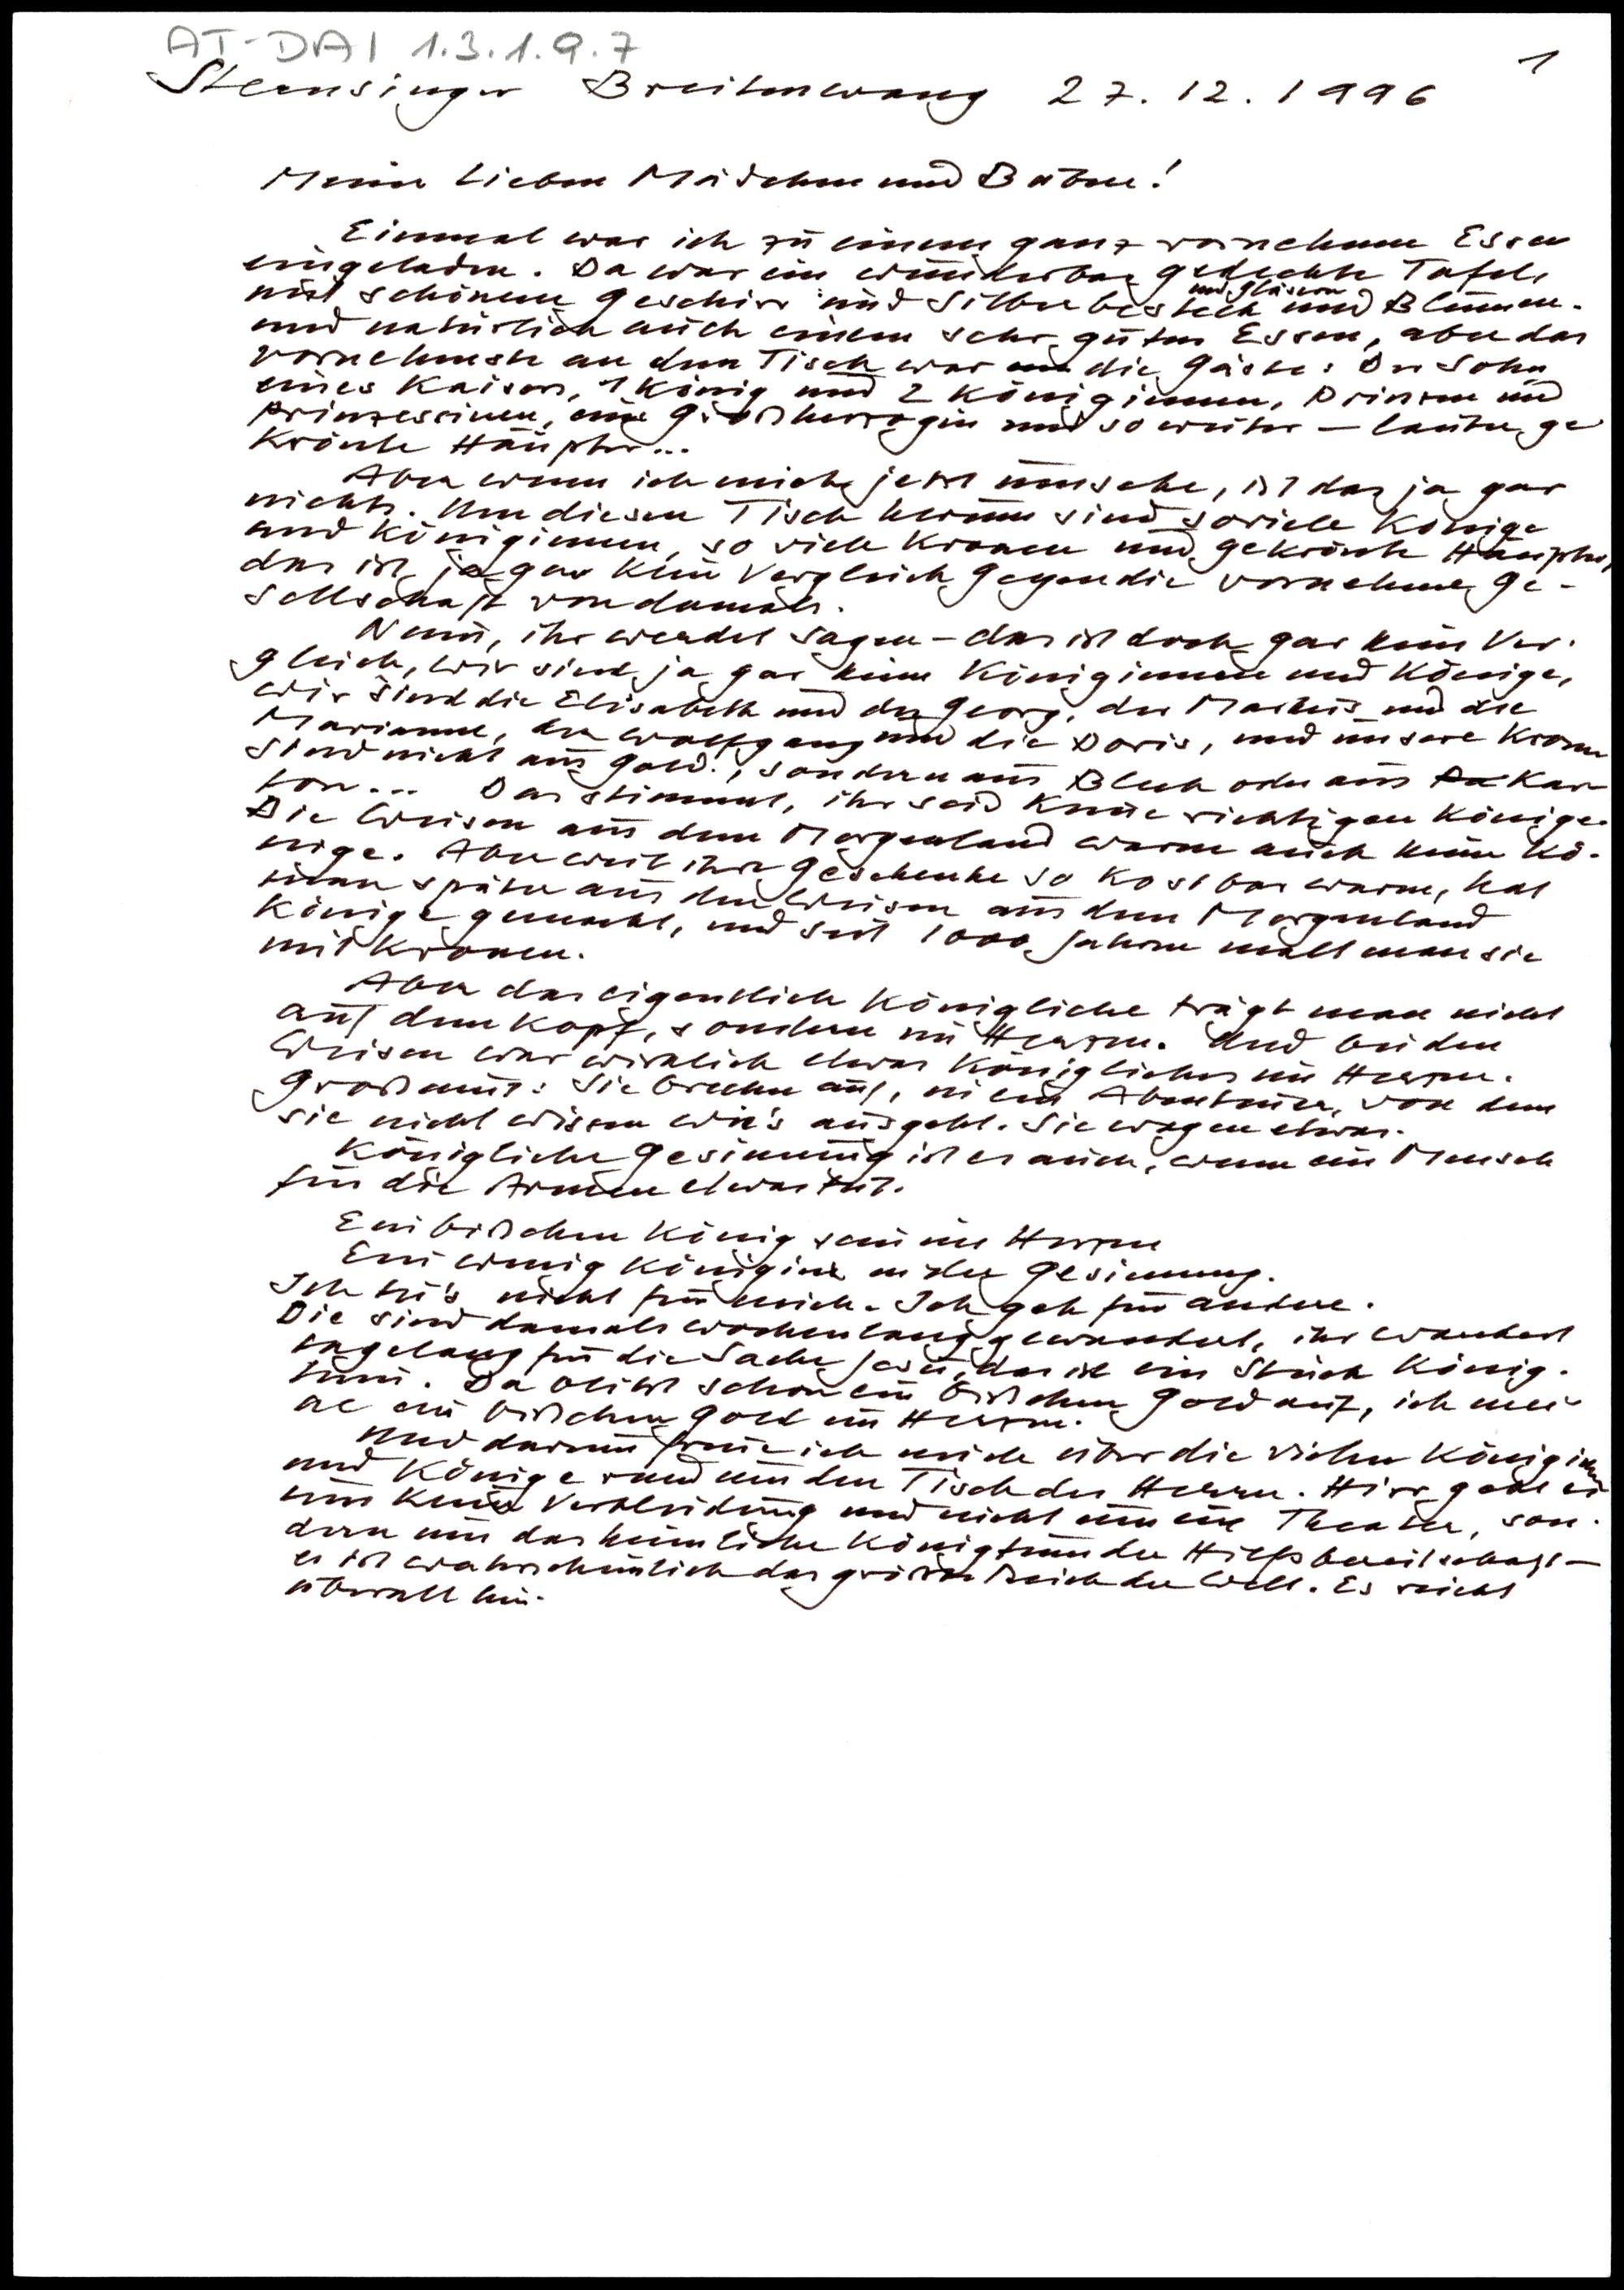 AT-DAI 1.3.1.9.7
1
Sternsinger Breitenwang 27.12.1996
Meine lieben Mädchen und Buben!
Einmal war ich zu einem ganz vornehmen Essen
eingeladen. Da war ein wunderbar gedeckte Tafel,
und Gläsern
mit schönem Geschirr und Silberbesteck und Blumen.
und natürlich auch einem sehr guten Essen, aber das
vornehmste an dem Tisch war die Gäste: Der Sohn
eines Kaisers, 1 König und 2 Königinnen, Prinzen und
Prinzessinen, eine Großherzogin und so weiter – lauter ge
krönte Häupter...
Aber wenn ich mich jetzt umsehe, ist das ja gar
nichts. Um diesen Tisch herum sind soviele Könige
und Königinnen, so viele Kronen und gekrönte Häupter,
das ist ja gar kein Vergleich gegen die vornehme Ge-
sellschaft von damals.
Nun, ihr werdet sagen – das ist doch gar kein Ver-
gleich, wir sind ja gar keine Königinnen und Könige,
wir sind die Elisabeth und der Georg, der Markus und die
Marianne, der Wolfgang und die Doris, und unsere Kronen
sind nicht aus Gold, sondern aus Blech oder aus Kar
ton... Das stimmt, ihr seid keine richtigen Könige.
Die Weisen aus dem Morgenland waren auch keine Kö-
nige. Aber weil ihre Geschenke so kostbar waren, hat
man später aus den Weisen aus dem Morgenland
Könige gemacht, und seit 1000 Jahren malt man sie
mit Kronen.
Aber das eigentlich Königliche trägt man nicht
auf dem Kopf, sondern im Herzen. Und bei den
Weisen war wirklich etwas Königliches im Herzen.
Großmut: Sie brechen auf, in ein Abenteuer, von dem
sie nicht wissen wie's ausgeht. Sie wagen etwas.
Königliche Gesinnung ist es auch, wenn ein Mensch
für die Armen etwas tut.
Ein bißchen König sein im Herzen
Ein wenig Königin in der Gesinnung.
Ich tu's nicht für mich. Ich geh für andere.
Die sind damals wochenlang gewandert, ihr wandert
tagelang für die Sache Jesu, das ist ein Stück König-
tum. Da blitzt schon ein bißchen Gold auf, ich mei-
ne ein bißchen Gold im Herzen.
Und darum freue ich mich über die vielen Königinnen
und Könige rund um den Tisch des Herrn. Hier geht es
um keine Verkleidung und nicht um ein Theater, son-
dern um das heimliche Königtum der Hilfsbereitschaft –
es ist wahrscheinlich das größte Reich der Welt. Es reicht
überall hin.